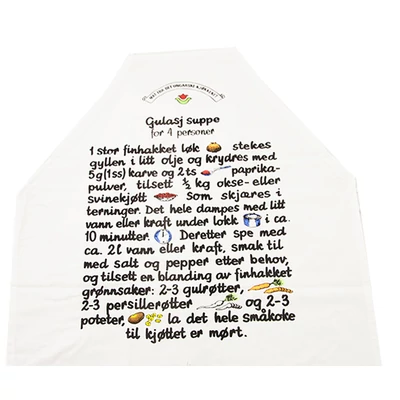 MAT FRA DET UNGARSKE KJØKKENET
Gulasj suppe
for 4 personer
1 stor finhakket løk stekes
gyllen i litt olje og krydres med
5g (1ss) karve og 2 ts paprika-
pulver, tilsett ½ kg okse- eller
svinekjøtt Som skjæres i
terninger. Det hele dampes med litt
vann eller kraft under lokk i ca.
10 minutter. Deretter spe med
ca. 2l vann eller kraft, smak til
med salt og pepper etter behov,
og tilsett en blanding av finhakket
grønnsaker: 2-3 gulrøtter,
2-3 persillerøtter og 2-3
poteter, la det hele småkoke
til kjøttet er mørt.